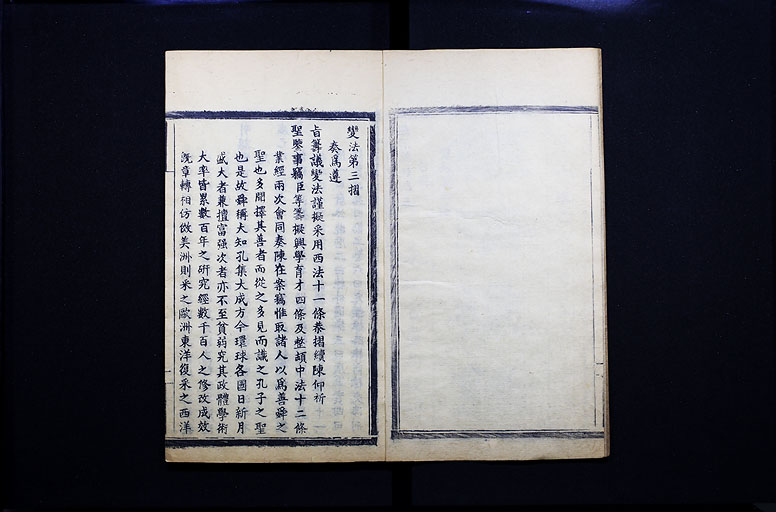 變法第三摺
奏爲遵
旨籌議變法謹擬采用西法十一條恭摺續陳仰祈
聖鑒事竊臣等籌擬興學育才四條及整頓中法十二條
業經兩次會同奏陳在案竊惟取諸人以爲善舜之
聖也多聞擇其善者而從之多見而識之孔子之聖
也是故舜稱大知孔集大成方今環球各國日新月
盛大者兼擅富强次者亦不至貧弱究其政體學術
大率皆累數百年之研究經數千百人之修改成效
旣章轉相仿傚美洲則采之歐洲東洋復采之西洋